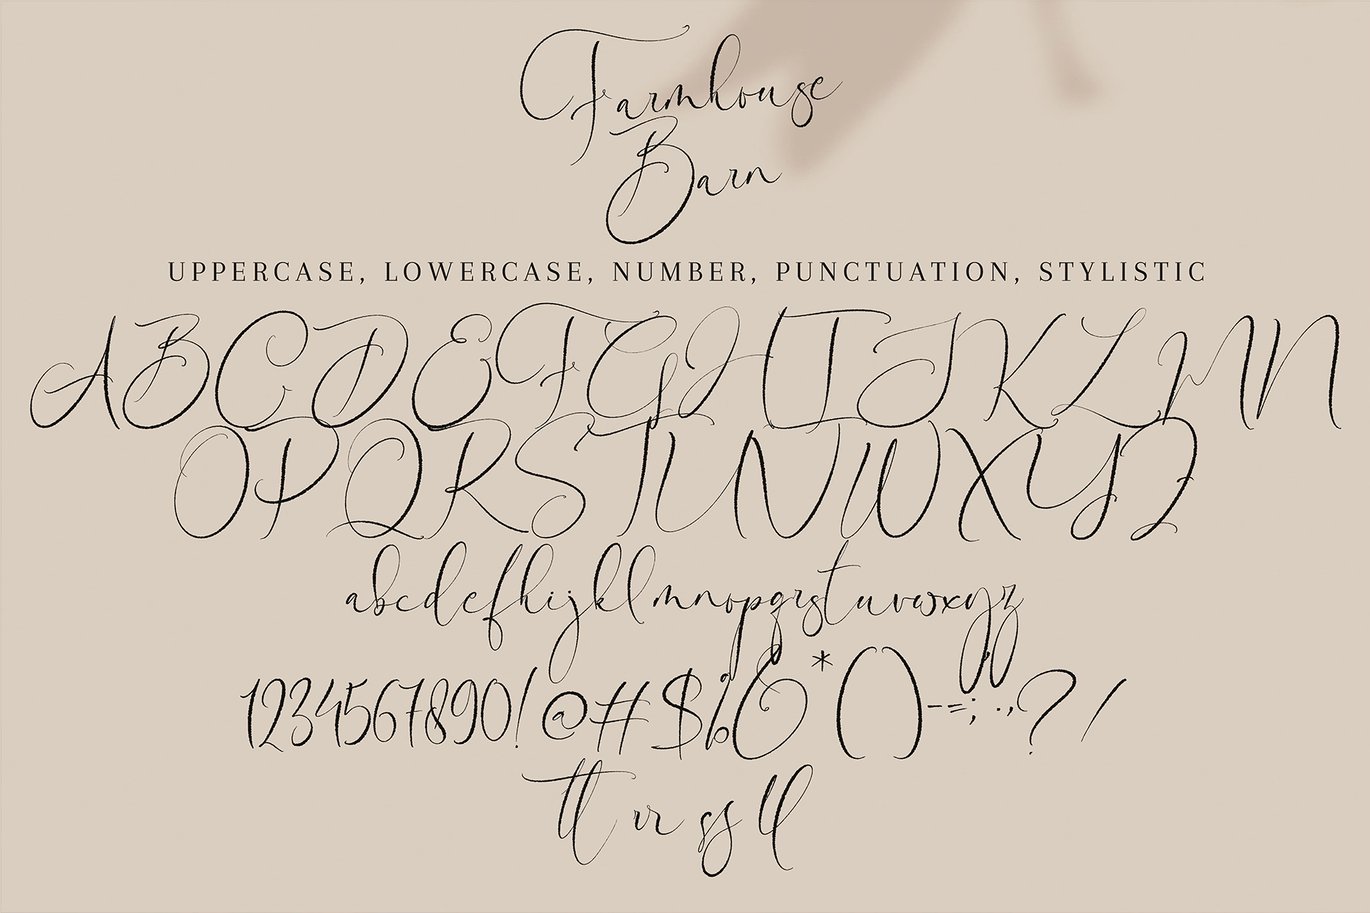 Farmhouse
Barn
UPPERCASE, LOWERCASE, NUMBER, PUNCTUATION, STYLISTIC
ABCDEFGHIJKLMN
OPQRSTUVWXYZ
abcdefhijklmnopqrstuvwxyz
1234567890!@#$%&*()-=;:.,?/
tt rr ss ll